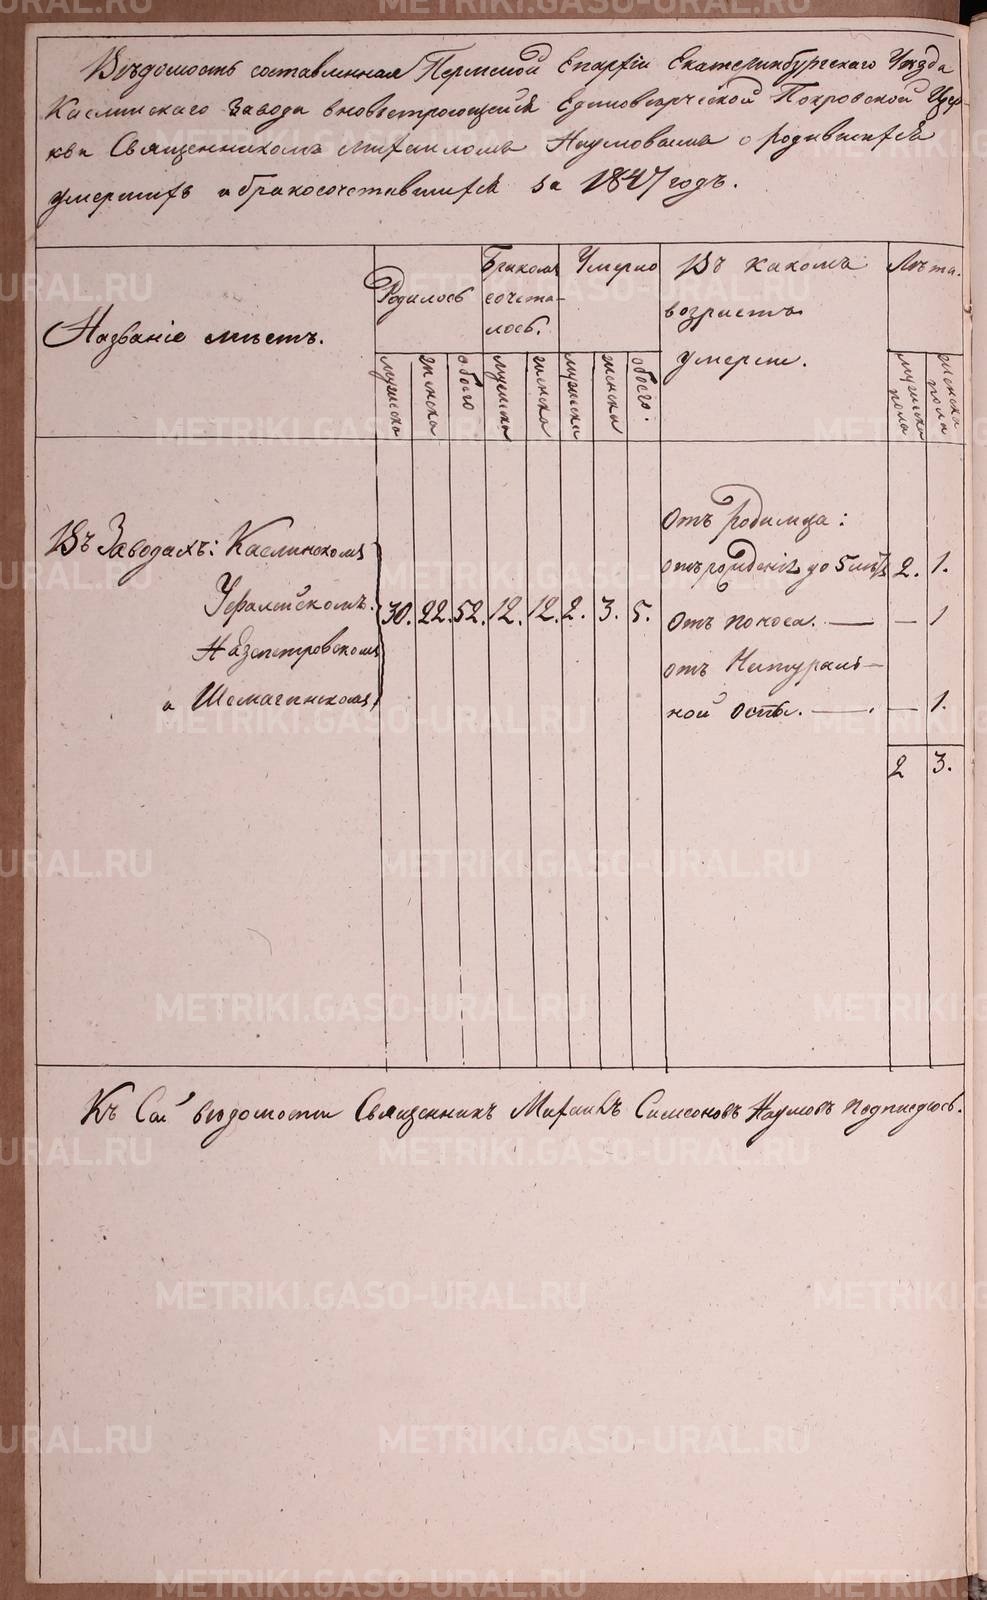 Вѣдомость составленная Пермской Епархіи Екатеринбургскаго Уѣзда
Каслинскаго Завода вновьстроющейся Единоверческой Покровской Цер-
кви Священникомъ Михаиломъ Наумовымъ о родившихся
умершихъ и бракосочетавшихся за 1847 годъ.
Названіе мѣстъ.
Родилось
Бракомъ
сочета-
лось.
Умерло
Въ какомъ
возрастѣ
умерли.
Лѣта.
мужеска
женска
обоего
мужеска
женска
мужеска
женска
обоего.
мужеска
пола
женска
пола
Въ Заводахъ: Каслинскомъ
Уфалейскомъ.
Нязепетровскомъ
и Шемахинскомъ
30. 22. 52. 12. 12. 2. 3. 5.
Отъ родимца:
отъ рожденія до 5 лѣтъ 2. 1.
Отъ поноса. — — 1
отъ Натураль-
ной оспы. — — 1.
2 3.
Къ Сей ведомости Священникъ Михаилъ Симеоновъ Наумовъ подписуюсь.
METRIKI.GASO-URAL.RU